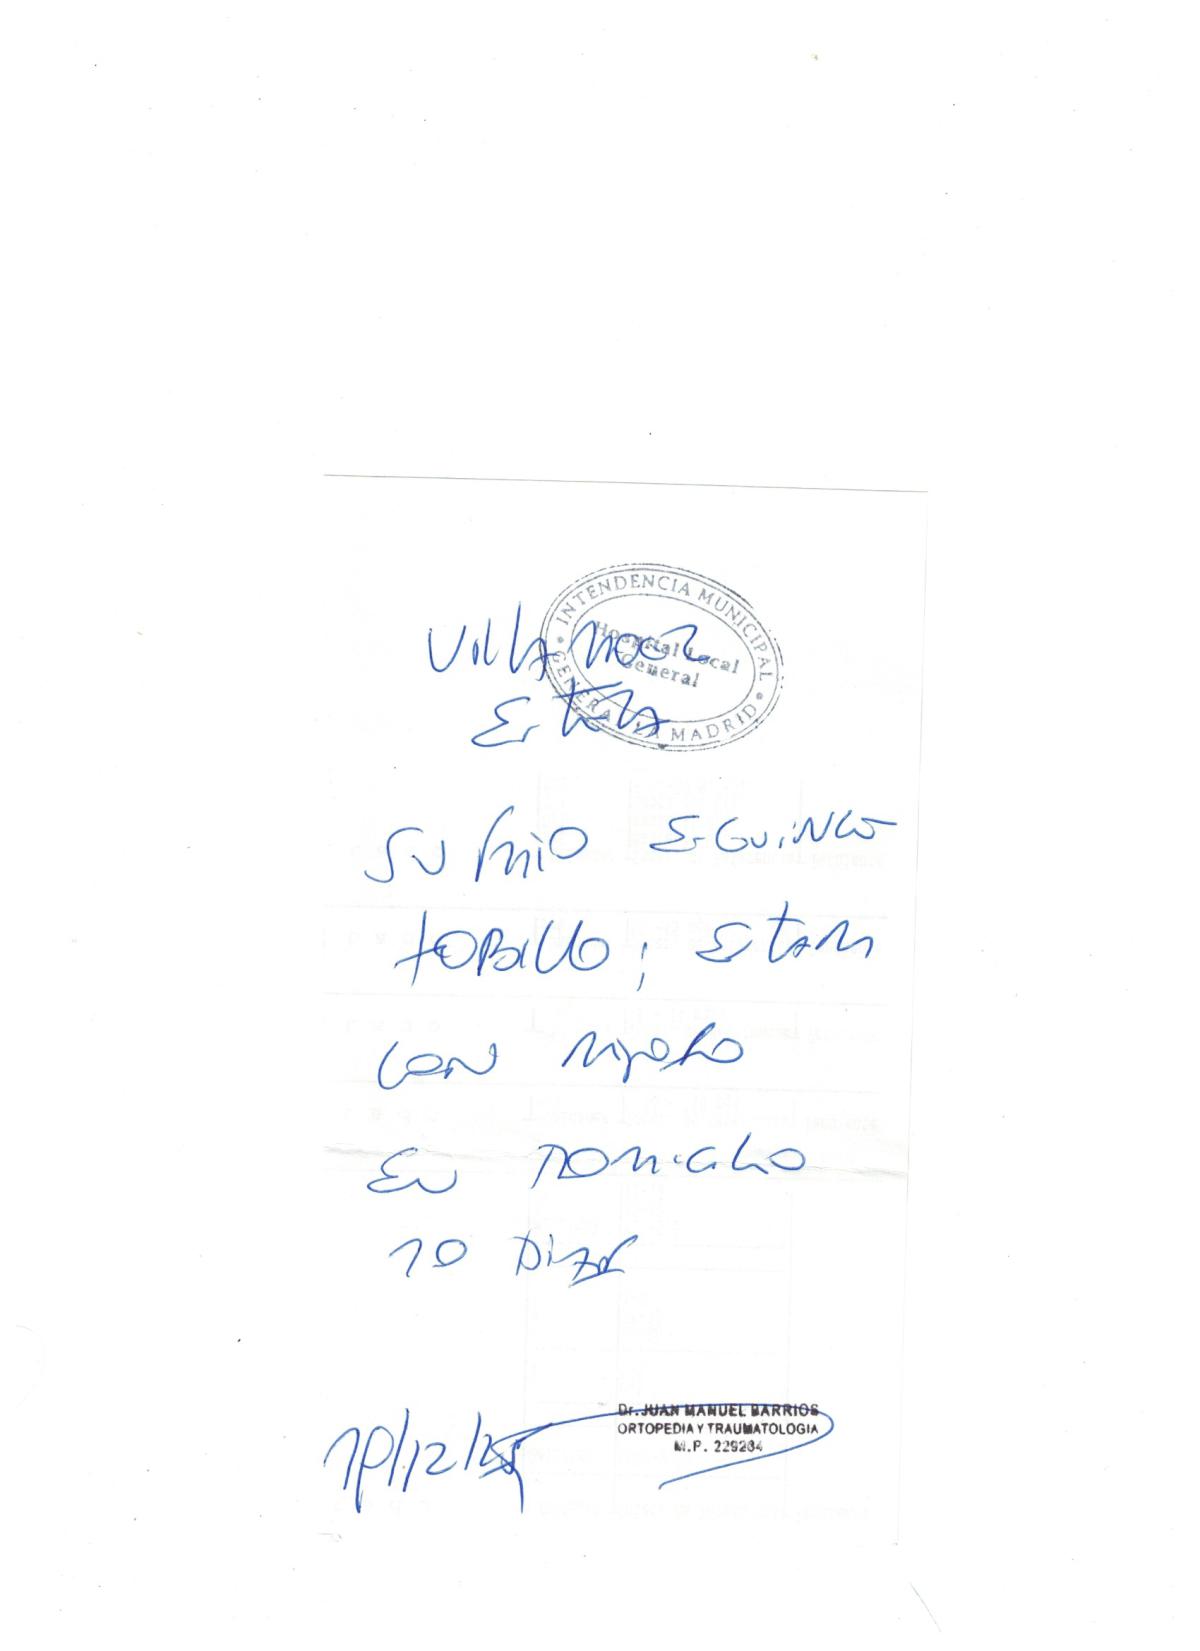 INTENDENCIA MUNICIPAL
Hospital Local
General
GENERAL LA MADRID
Estela
SUFRIO ESGUINCE
TOBILLO; ESTARA
CON REPOSO
EN DOMICILIO
10 DIAS
10/12/25
Dr. JUAN MANUEL BARRIOS
ORTOPEDIA Y TRAUMATOLOGIA
M.P. 229264